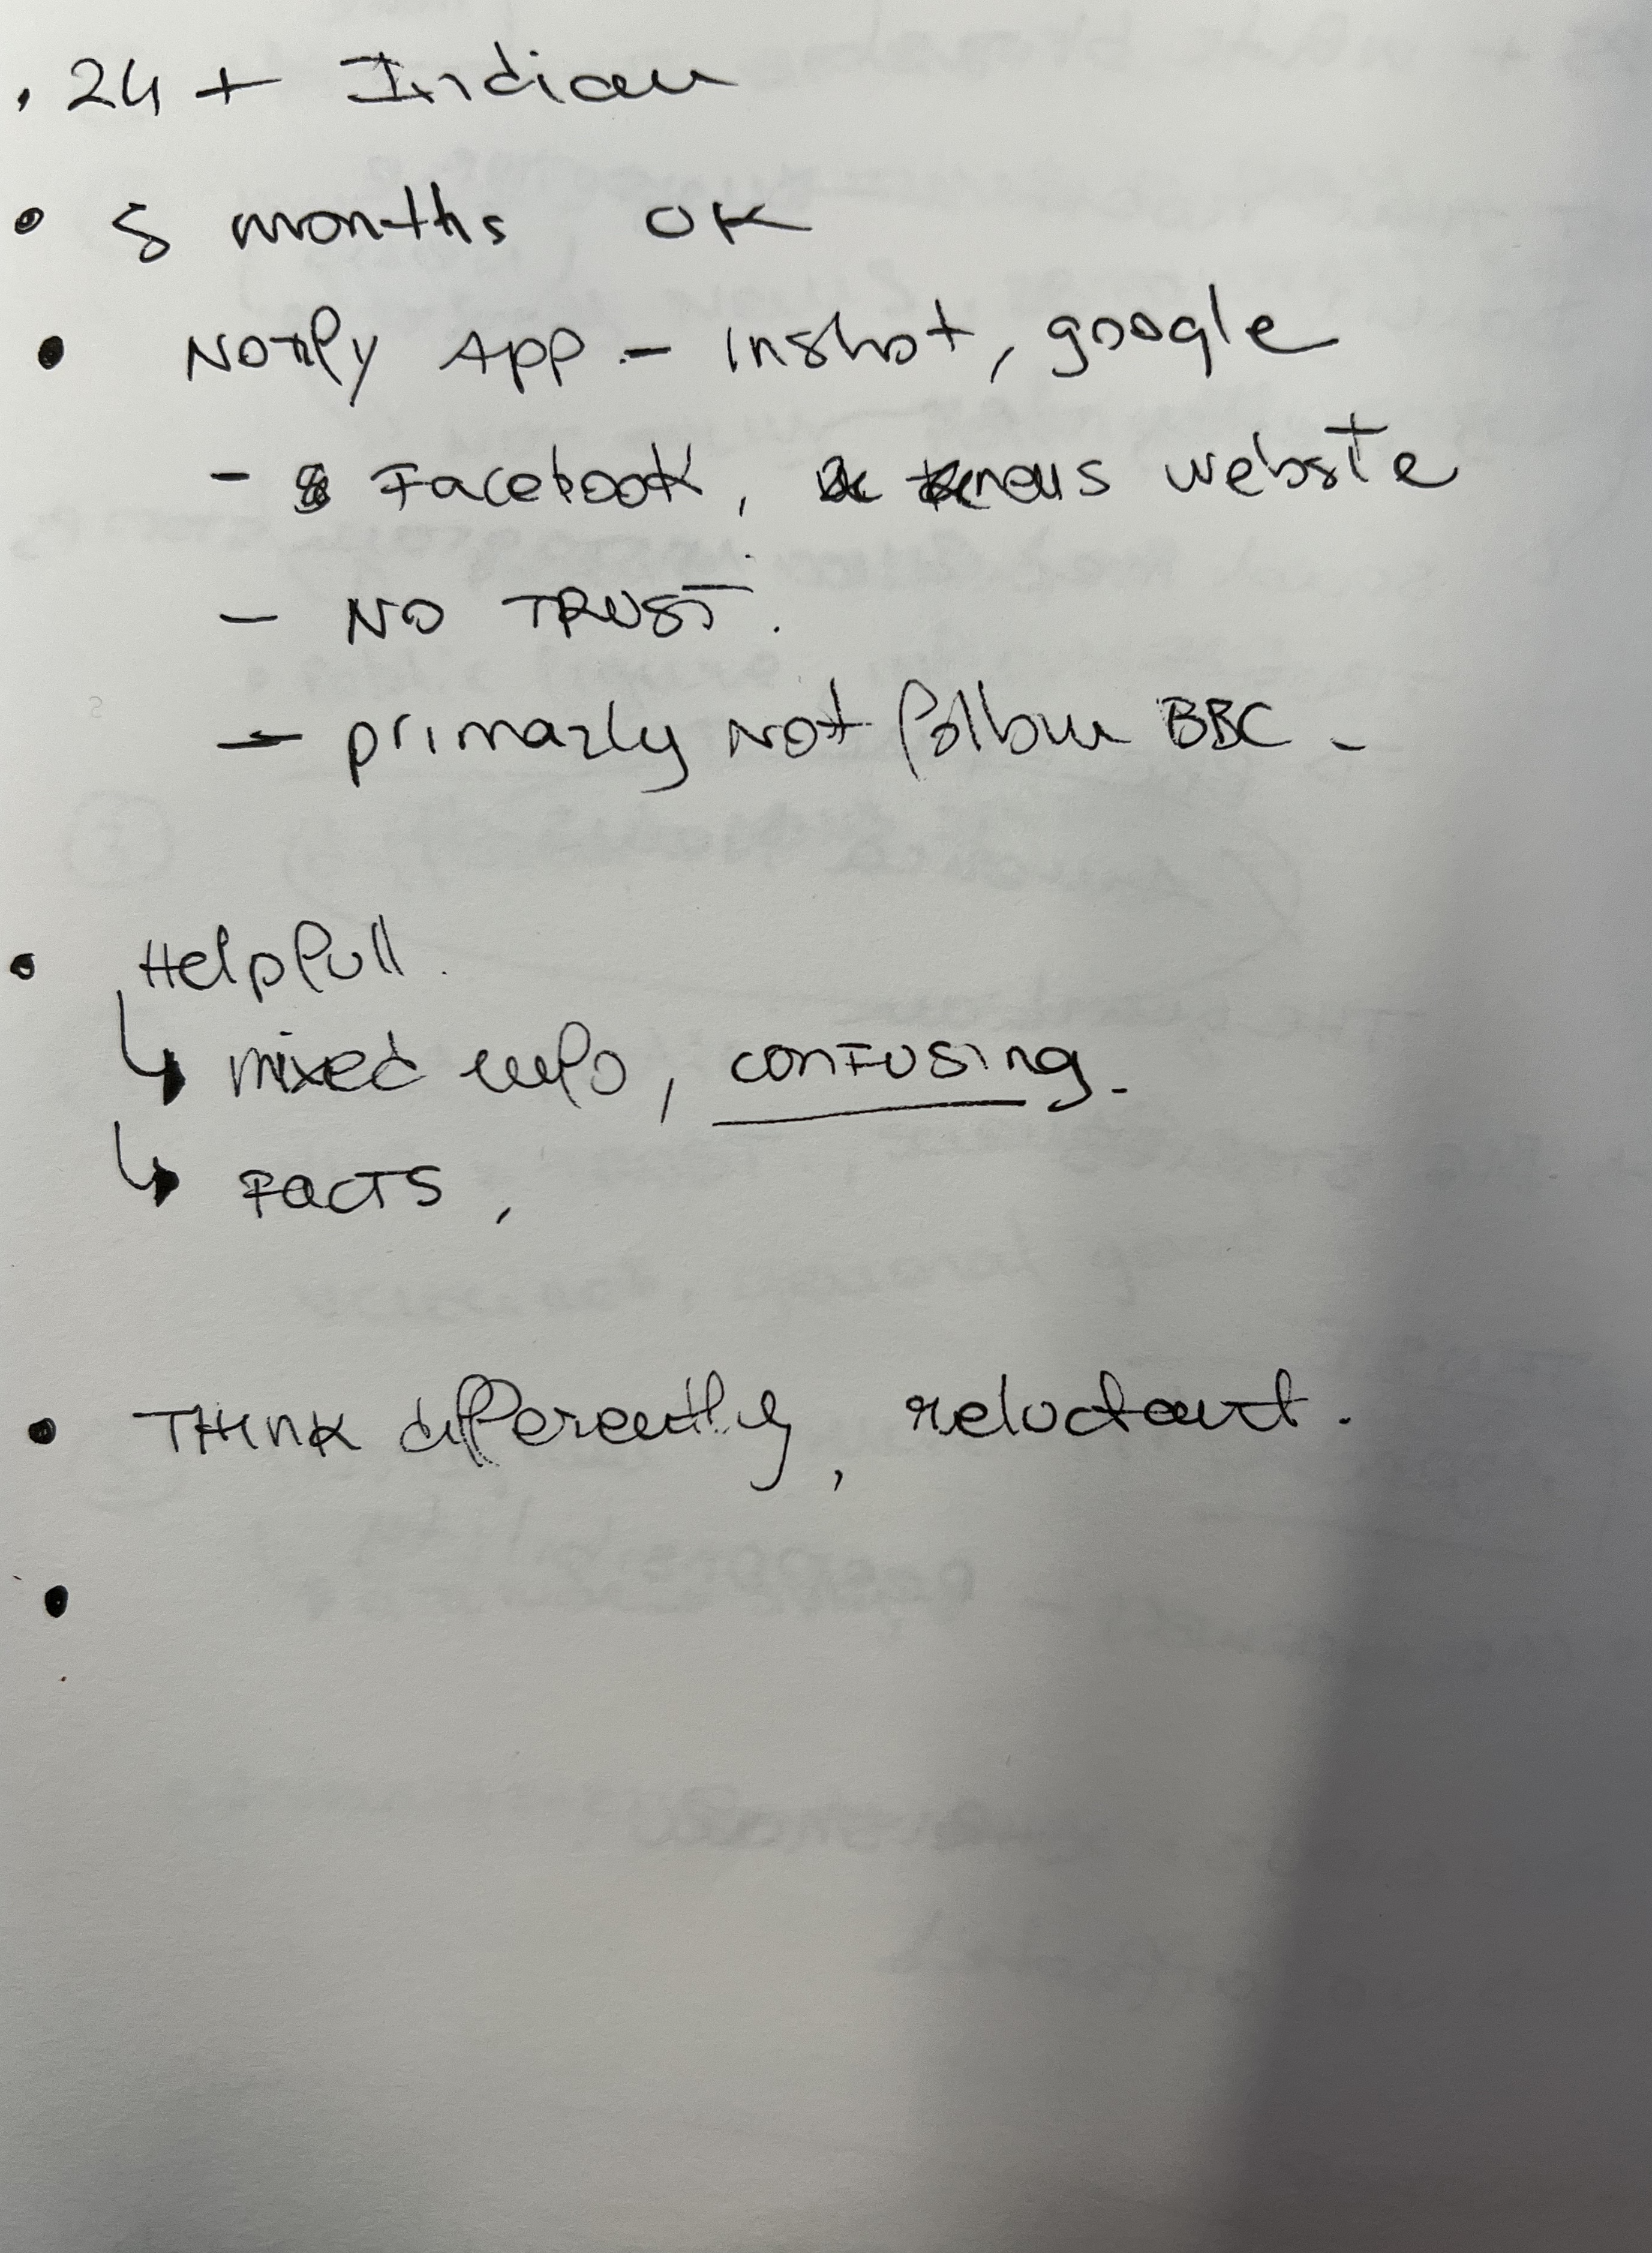 . 24 + Indian
• 5 months OK
• Notify App - Inshot, google
- Facebook, news website
- NO TRUST.
- primarly not follow BBC -
• Helpfull.
↳ mixed info, confusing.
↳ FACTS,
• THINK differently, reluctant.
•